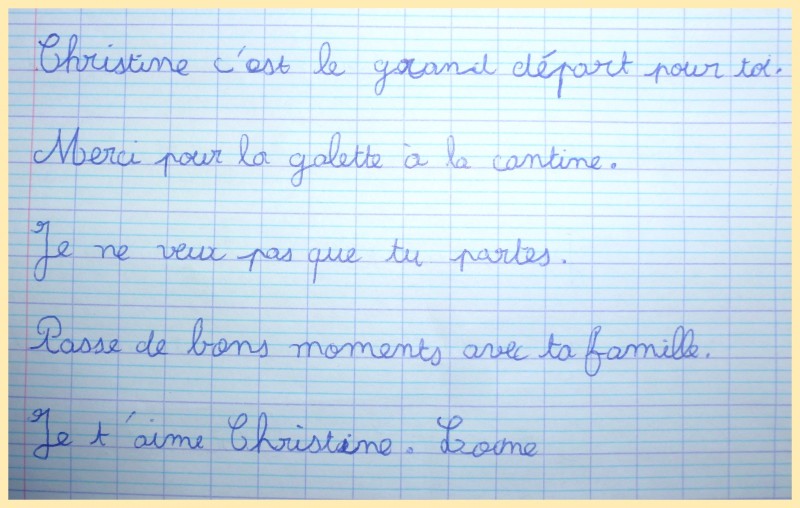 Christine c'est le grand départ pour toi.
Merci pour la galette à la cantine.
Je ne veux pas que tu partes.
Passe de bons moments avec ta famille.
Je t'aime Christine.